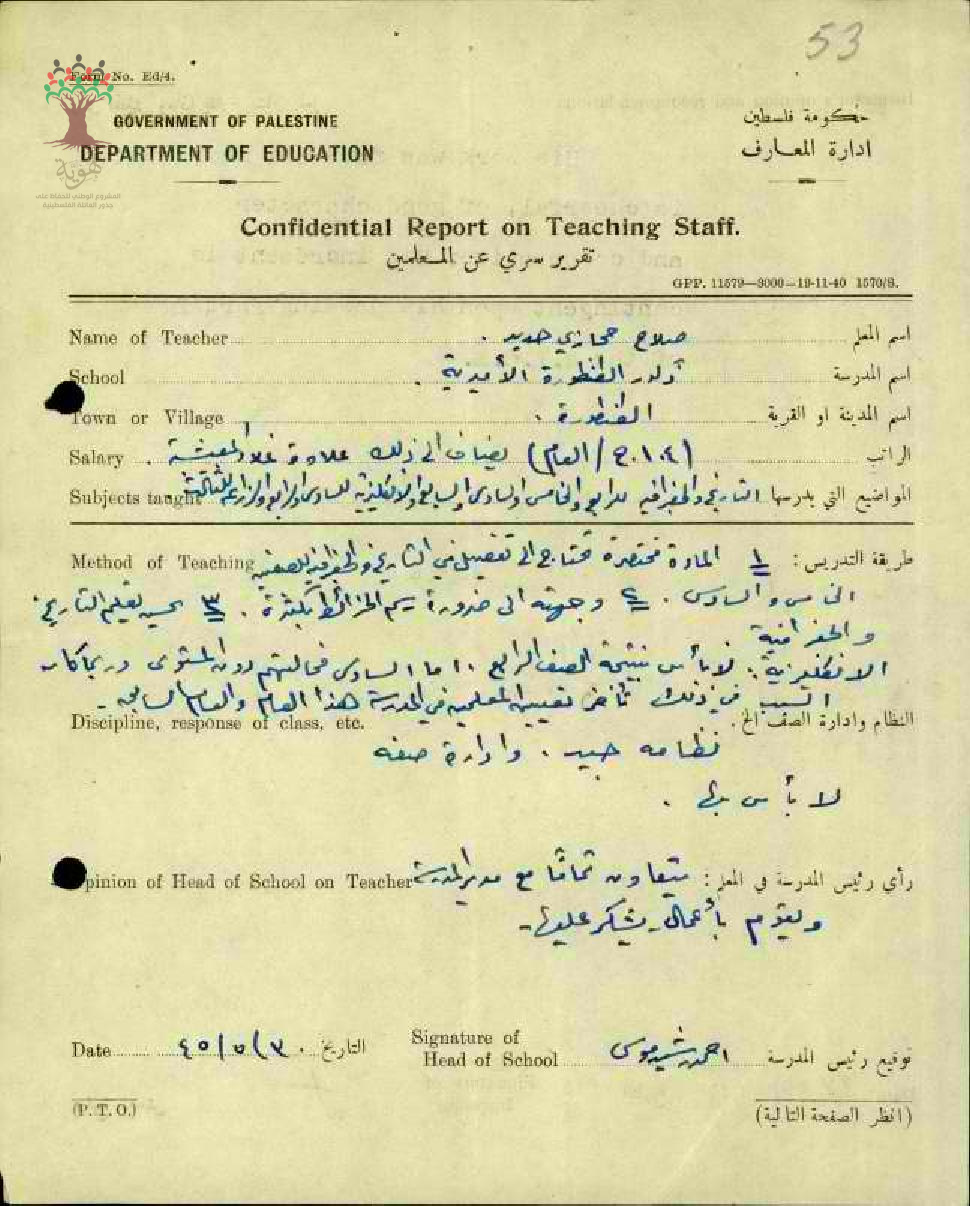 53
Form No. Ed/4.
GOVERNMENT OF PALESTINE
حكومة فلسطين
DEPARTMENT OF EDUCATION
ادارة المعارف
Confidential Report on Teaching Staff.
تقرير سري عن المعلمين
GPP. 11579—3000—19-11-40 1570/S.
Name of Teacher صلاح حجازي حديد . اسم المعلم
School الطنطورة الأميرية . اسم المدرسة
Town or Village الطنطورة . اسم المدينة او القرية
Salary (١٠٤ ج/العام) يضاف الى ذلك علاوة غلاء المعيشة . الراتب
Subjects taught التاريخ والجغرافيه للرابع والخامس والسادس والسابع والانكليزية للسادس والرابع والزراعة المواضيع التي يدرسها
Method of Teaching طريقة التدريس : ١ المادة مختصرة تحتاج الى تفصيل في التاريخ والجغرافية للصفين
الخامس والسادس . ٢ وجهته الى ضرورة رسم الخرائط بكثرة . ٣ يحسن تعليم التاريخ
والجغرافية
الانكليزية : لا بأس بنتيجة الصف الرابع . اما السادس فحالتهم دون المستوى وربما كان
السبب في ذلك تأخر تعيين المعلمين في المدرسة هذا العام والعام السابق -
Discipline, response of class, etc. النظام وادارة الصف الخ .
نظامه جيد . وادارة صفه
لا بأس بها .
Opinion of Head of School on Teacher رأي رئيس المدرسة في المعلم : يتعاون تمامًا مع مدير المدرسة
ويقوم بأعمال يشكر عليها -
Date ٣٠/٥/٤٥ التاريخ
Signature of
Head of School احمد رشيد موسى توقيع رئيس المدرسة
(P. T. O.)
(انظر الصفحة التالية)